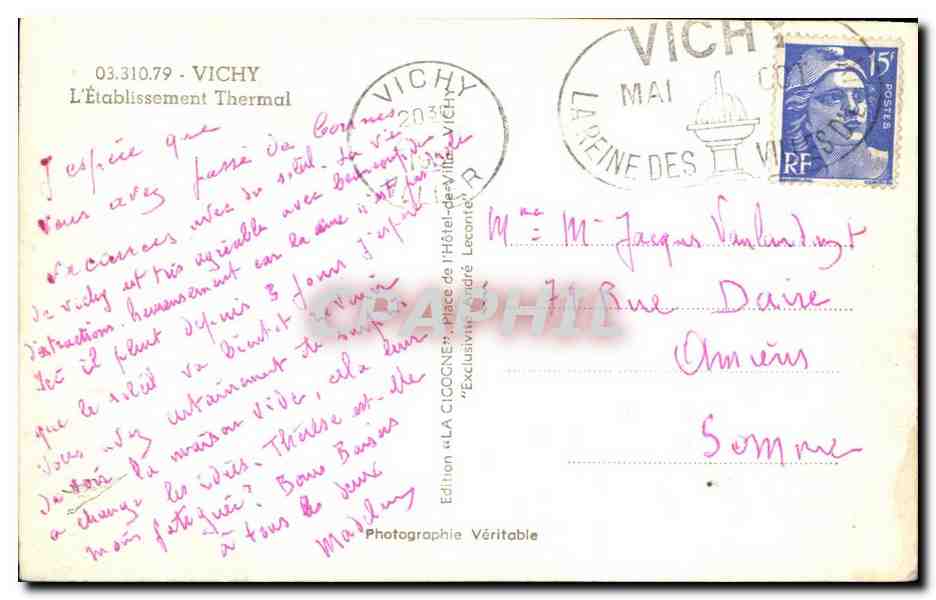 03.310.79 - VICHY
L'Établissement Thermal
J'espère que
vous avez passé de bonnes
vacances avec du soleil. La vie
de Vichy est très agréable avec beaucoup de
distractions. heureusement car la cure n'est pas
Ici il pleut depuis 3 jours j'espère
que le soleil va bientôt
Vous avez certainement été surpris
de voir la maison vide, cela leur
a changé les idées. Thérèse est-elle
moins fatiguée? Bons Baisers
à tous les deux
Photographie Véritable
Edition "LA CIGOGNE". Place de l'Hôtel-de-Ville. VICHY.
"Exclusivité André Leconte"
VICHY
20 30
ALLIER
VICHY
MAI OCT
LA REINE DES VILLES D'
15F
POSTES
RF
Mme = Mr Jacques
71 Rue Daire
Amiens
Somme
CPARPHIL